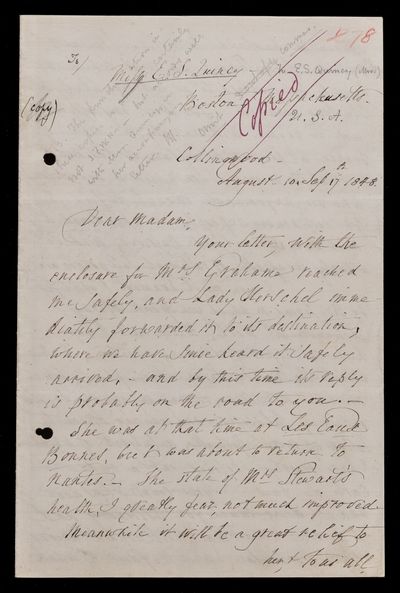 To/
Miss E. S. Quincy
To E. S. Quincy (Miss)
8
(copy)
Boston Massachusetts.
U. S. A.
Copied
Collingwood -
August 10. Sep 17th 1848.
Dear Madam,
Your letter, with the
enclosure for Mrs Grahame reached
me safely, and Lady Herschel imme-
diately forwarded it to its destination,
where we have since heard it safely
arrived, - and by this time its reply
is probably on the road to you. -
She was at that time at Les Eaux
Bonnes, but was about to return to
Nantes. - The state of Mrs Stewart's
health, I greatly fear, not much improved.
Meanwhile it will be a great relief to
her, & to us all,